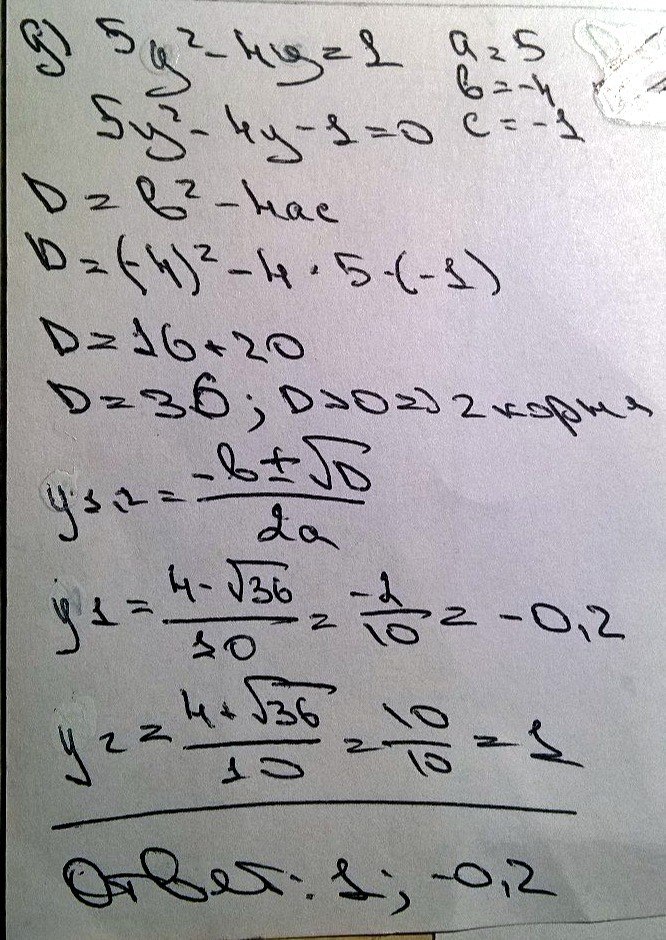 д) 5y² - 4y = 1 a = 5
b = -4
5y² - 4y - 1 = 0 c = -1
D = b² - 4ac
D = (-4)² - 4 · 5 · (-1)
D = 16 + 20
D = 36; D > 0 => 2 корня
y1,2 = (-b ± √D) / 2a
y1 = (4 - √36) / 10 = -2/10 = -0,2
y2 = (4 + √36) / 10 = 10/10 = 1
Ответ: 1; -0,2